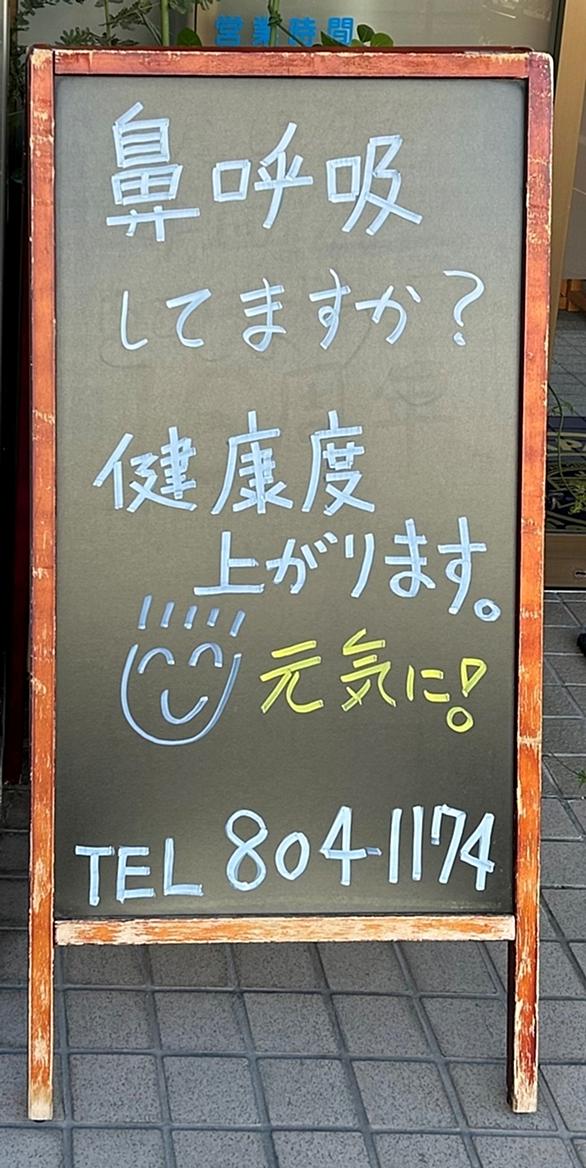 営業時間
鼻呼吸
してますか?
健康度
上がります。
元気に!
TEL 804-1174